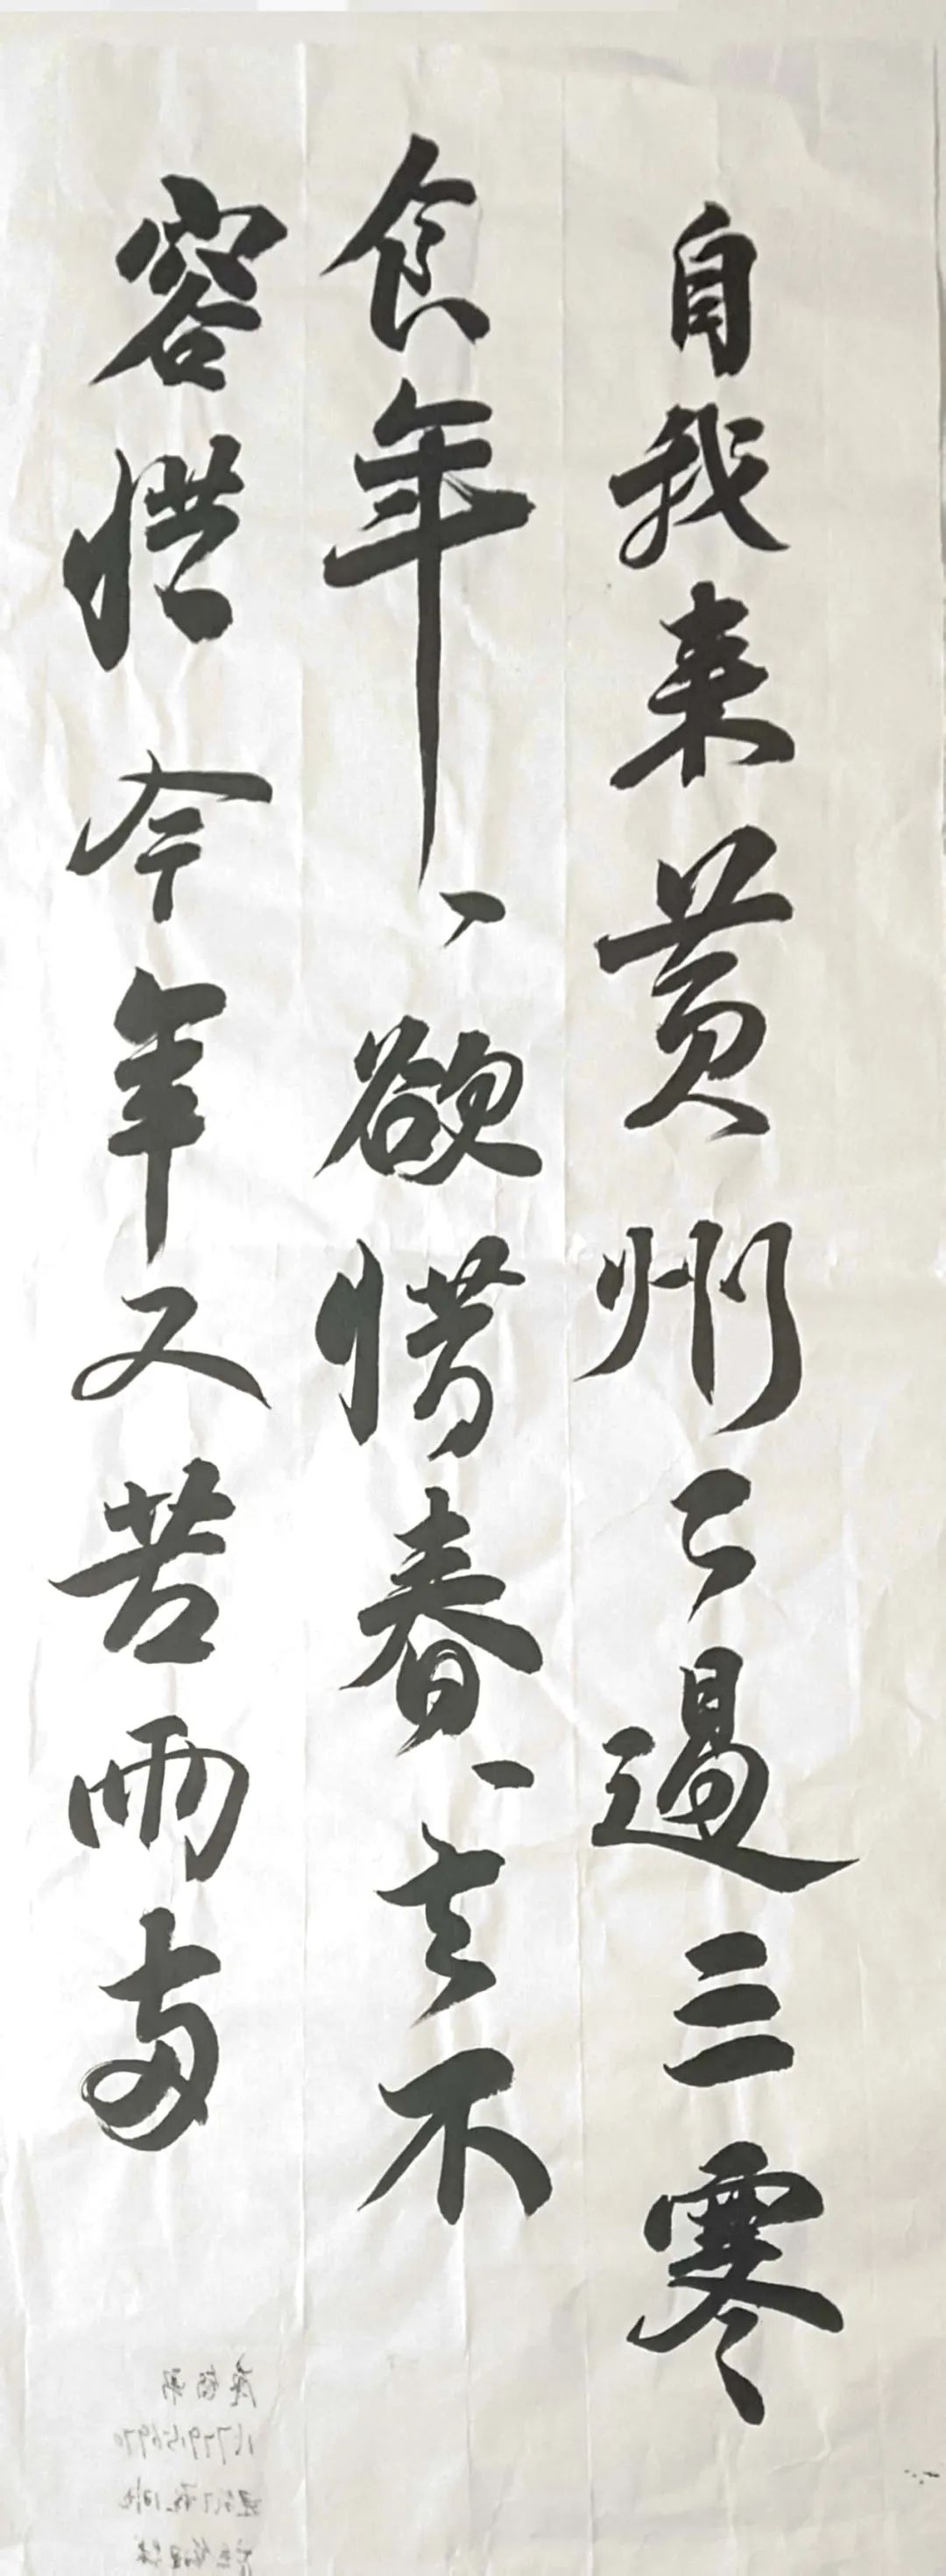 自我来黄州已過三寒
食年、欲惜春、去不
容惜今年又苦雨兩